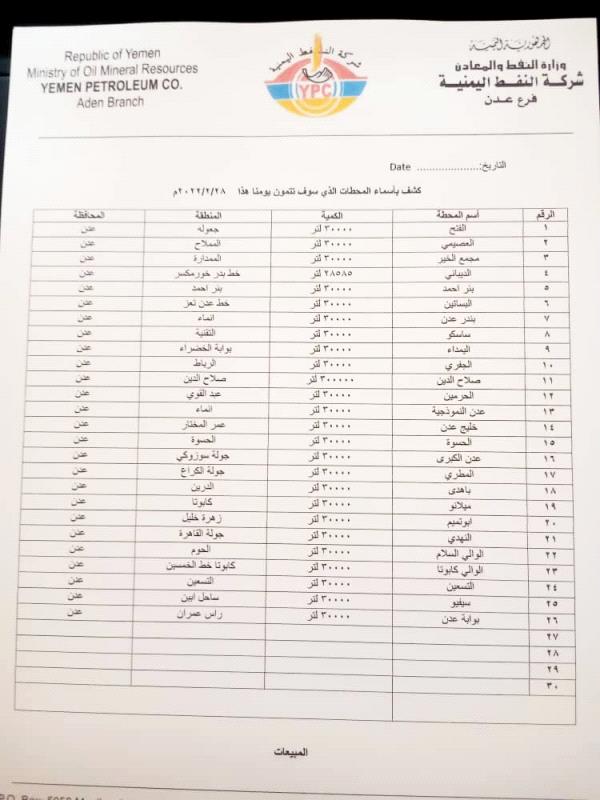 Republic of Yemen
Ministry of Oil Mineral Resources
YEMEN PETROLEUM CO.
Aden Branch
شركة النفط اليمنية
YPC
الجمهورية اليمنية
وزارة النفط والمعادن
شركة النفط اليمنية
فرع عدن
التاريخ:................... Date
كشف بأسماء المحطات الذي سوف تتمون يومنا هذا ٢٠٢٢/٢/٢٨م
الرقم أسم المحطة الكمية المنطقة المحافظة
١ الفتح ٣٠٠٠٠ لتر جعوله عدن
٢ العصيمي ٣٠٠٠٠ لتر الممלاح عدن
٣ مجمع الخير ٣٠٠٠٠ لتر الممدارة عدن
٤ الديباني ٢٨٥٨٥ لتر خط بدر خورمكسر عدن
٥ بئر احمد ٣٠٠٠٠ لتر بئر احمد عدن
٦ البساتين ٣٠٠٠٠ لتر خط عدن تعز عدن
٧ بندر عدن ٣٠٠٠٠ لتر انماء عدن
٨ ساسكو ٣٠٠٠٠ لتر التقنية عدن
٩ اليمداء ٣٠٠٠٠ لتر بوابة الخضراء عدن
١٠ الجفري ٣٠٠٠٠ لتر الرباط عدن
١١ صلاح الدين ٣٠٠٠٠٠ لتر صلاح الدين عدن
١٢ الحرمين ٣٠٠٠٠ لتر عبد القوي عدن
١٣ عدن النموذجية ٣٠٠٠٠ لتر انماء عدن
١٤ خليج عدن ٣٠٠٠٠ لتر عمر المختار عدن
١٥ الحسوة ٣٠٠٠٠ لتر الحسوة عدن
١٦ عدن الكبرى ٣٠٠٠٠ لتر جولة سوزوكي عدن
١٧ المطري ٣٠٠٠٠ لتر جولة الكراع عدن
١٨ باهدى ٣٠٠٠٠ لتر الدرين عدن
١٩ ميلانو ٣٠٠٠٠ لتر كابوتا عدن
٢٠ ابوتميم ٣٠٠٠٠ لتر زهرة خليل عدن
٢١ النهدي ٣٠٠٠٠ لتر جولة القاهرة عدن
٢٢ الوالي السلام ٣٠٠٠٠ لتر الحوم عدن
٢٣ الوالي كابوتا ٣٠٠٠٠ لتر كابوتا خط الخمسين عدن
٢٤ التسعين ٣٠٠٠٠ لتر التسعين عدن
٢٥ سيفيو ٣٠٠٠٠ لتر ساحل ابين عدن
٢٦ بوابة عدن ٣٠٠٠٠ لتر راس عمران عدن
٢٧
٢٨
٢٩
٣٠
المبيعات